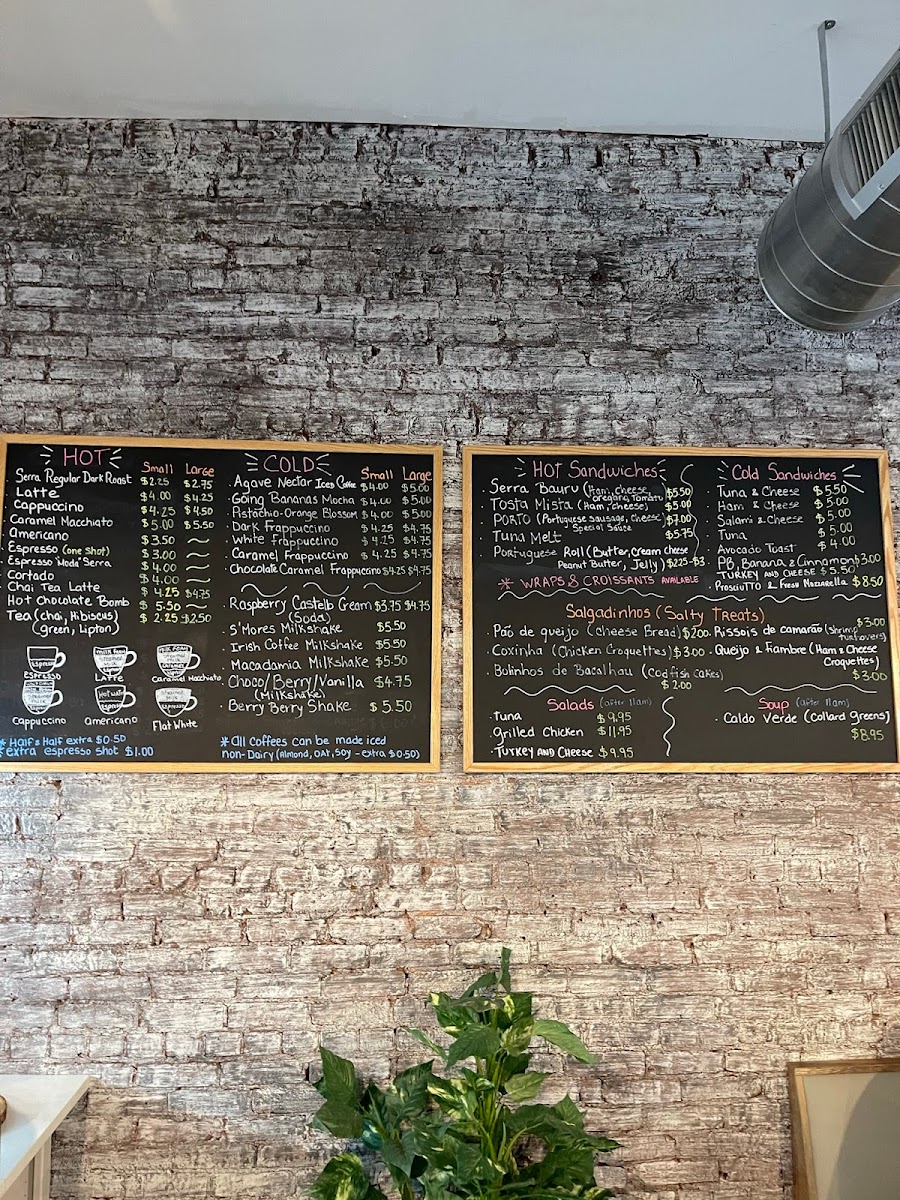 HOT
Small Large
Serra Regular Dark Roast $2.25 $2.75
Latte $4.00 $4.25
Cappuccino $4.25 $4.50
Caramel Macchiato $5.00 $5.50
Americano $3.50 ~
Espresso (one shot) $3.00 ~
Espresso "Moda" Serra $4.00 ~
Cortado $4.00 ~
Chai Tea Latte $4.25 $4.75
Hot Chocolate Bomb $5.50 ~
Tea (chai, Hibiscus) $2.25 $2.50
(green, Lipton)
Espresso
Espresso
Latte
Caramel Macchiato
Cappuccino
Hot water
Espresso
Americano
Flat White
* Half & Half extra $0.50
* extra espresso shot $1.00
COLD
Small Large
Agave Nectar Iced Coffee $4.00 $5.00
Going Bananas Mocha $4.00 $5.00
Pistachio-Orange Blossom $4.00 $5.00
Dark Frappuccino $4.25 $4.75
White Frappuccino $4.25 $4.75
Caramel Frappuccino $4.25 $4.75
Chocolate Caramel Frappuccino $4.25 $4.75
Raspberry Castelo Cream $3.75 $4.75
(Soda)
S'Mores Milkshake $5.50
Irish Coffee Milkshake $5.50
Macadamia Milkshake $5.50
Choco/Berry/Vanilla $4.75
(Milkshake)
Berry Berry Shake $5.50
* All coffees can be made iced
non-Dairy (Almond, oat, soy - extra $0.50)
Hot Sandwiches
Serra Bauru (Ham, cheese $5.50
oregano, Tomato)
Tosta Mista (Ham, cheese) $5.00
PORTO (Portuguese sausage, cheese, $7.00
Special Sauce
Tuna Melt $5.75
Portuguese Roll (Butter, Cream cheese
Peanut Butter, Jelly) $2.25-$3
* WRAPS & CROISSANTS AVAILABLE
Cold Sandwiches
Tuna & Cheese $5.50
Ham & Cheese $5.00
Salami & Cheese $5.00
Tuna $5.00
Avocado Toast $4.00
PB, Banana & Cinnamon $3.00
TURKEY AND CHEESE $5.50
PROSCIUTTO & Fresh Mozzarella $8.50
Salgadinhos (Salty Treats)
Pão de queijo (cheese Bread) $2.00
Coxinha (Chicken Croquettes) $3.00
Bolinhos de Bacalhau (Codfish Cakes)
$2.00
$3.00
Rissois de camarão (shrimp
turnovers)
Queijo & Fiambre (Ham & Cheese
Croquettes)
$3.00
Salads (after 11am)
Tuna $9.95
Grilled Chicken $11.95
TURKEY AND Cheese $9.95
Soup (after 11am)
Caldo Verde (Collard Greens)
$8.95